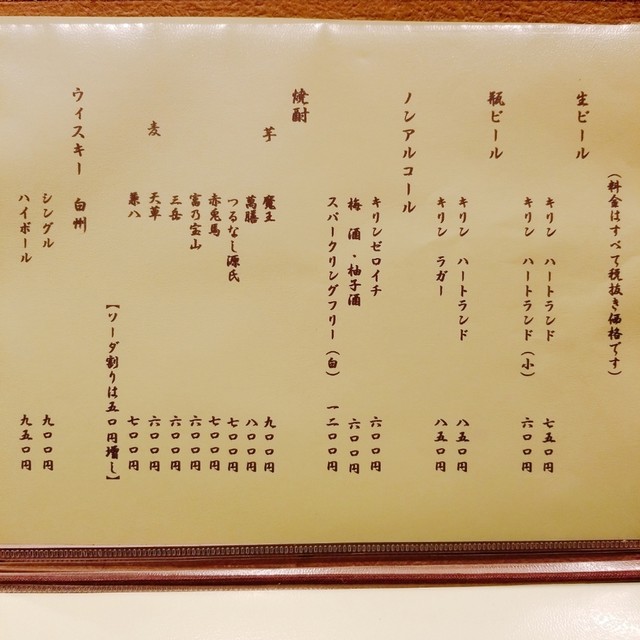 （料金はすべて税抜き価格です）
生ビール
キリン ハートランド 七五〇円
キリン ハートランド（小） 六〇〇円
瓶ビール
キリン ハートランド 八五〇円
キリン ラガー 八五〇円
ノンアルコール
キリンゼロイチ 六〇〇円
梅 酒・柚子酒 六〇〇円
スパークリングフリー（白） 一二〇〇円
焼酎
芋 魔王 九〇〇円
萬膳 八〇〇円
つるなし源氏 七〇〇円
赤兎馬 七〇〇円
富乃宝山 六〇〇円
三岳 六〇〇円
麦 天草 六〇〇円
兼八 七〇〇円
【ソーダ割りは五〇円増し】
ウィスキー 白州
シングル 九〇〇円
ハイボール 九五〇円